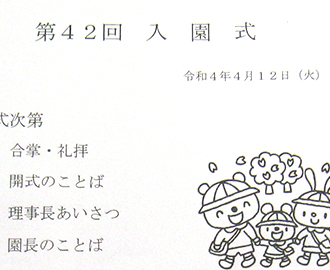 第４２回 入 園 式
令和４年４月１２日（火）
式次第
合掌・礼拝
開式のことば
理事長あいさつ
園長のことば